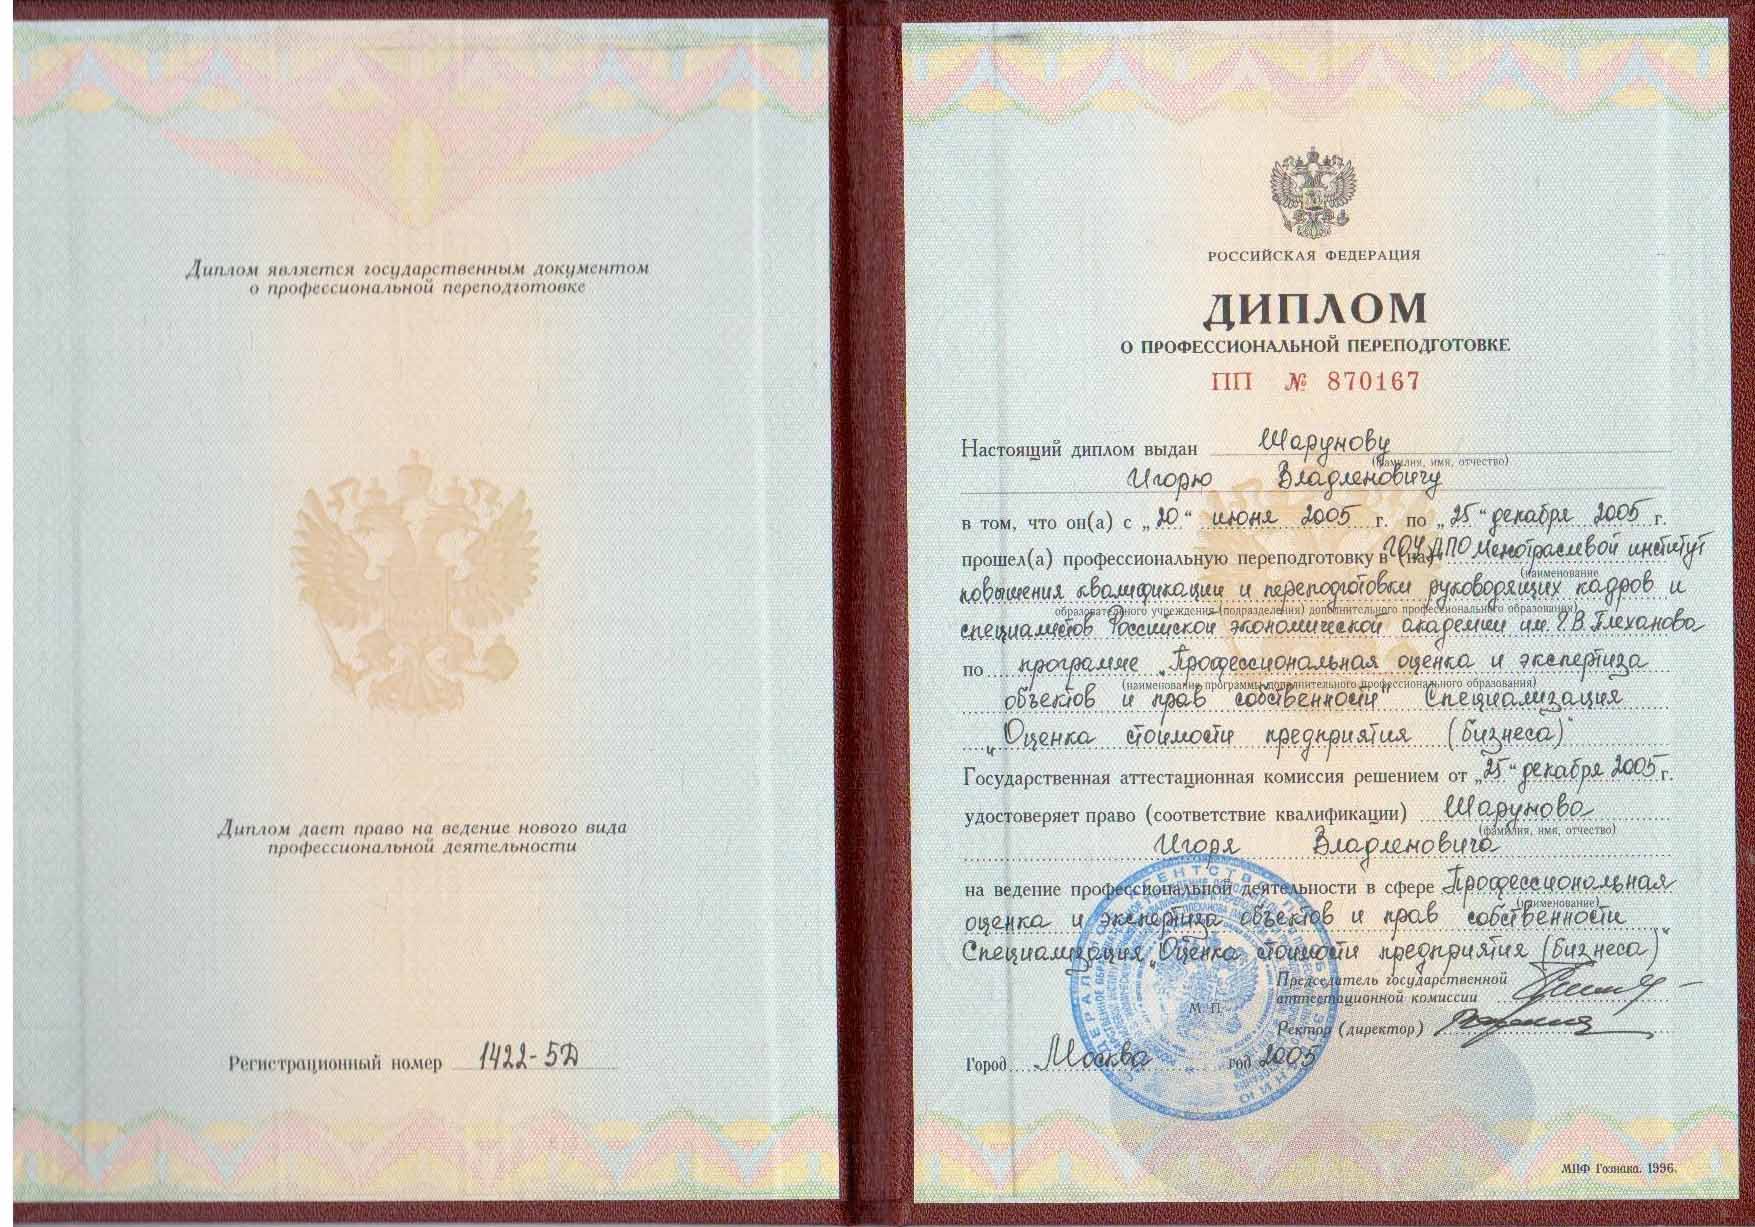 Диплом является государственным документом
о профессиональной переподготовке
Диплом дает право на ведение нового вида
профессиональной деятельности
Регистрационный номер 1422-5Д
РОССИЙСКАЯ ФЕДЕРАЦИЯ
ДИПЛОМ
О ПРОФЕССИОНАЛЬНОЙ ПЕРЕПОДГОТОВКЕ
ПП № 870167
Настоящий диплом выдан Шарунову
(фамилия, имя, отчество)
Игорю Владленовичу
в том, что он(а) с „20" июня 2005 г. по „25" декабря 2005 г.
прошел(а) профессиональную переподготовку в (на) ГОУ ДПО Межотраслевой институт
(наименование
повышения квалификации и переподготовки руководящих кадров и
образовательного учреждения (подразделения) дополнительного профессионального образования)
специалистов Российской экономической академии им. Г.В. Плеханова
по программе „Профессиональная оценка и экспертиза
(наименование программы дополнительного профессионального образования)
объектов и прав собственности" Специализация
„Оценка стоимости предприятия (бизнеса)"
Государственная аттестационная комиссия решением от „25" декабря 2005 г.
удостоверяет право (соответствие квалификации) Шарунова
(фамилия, имя, отчество)
Игоря Владленовича
на ведение профессиональной деятельности в сфере Профессиональная
(наименование)
оценка и экспертиза объектов и прав собственности
Специализация „Оценка стоимости предприятия (бизнеса)"
Председатель государственной
аттестационной комиссии
М П
Ректор (директор)
Город Москва год 2005
МПФ Гознака. 1996.